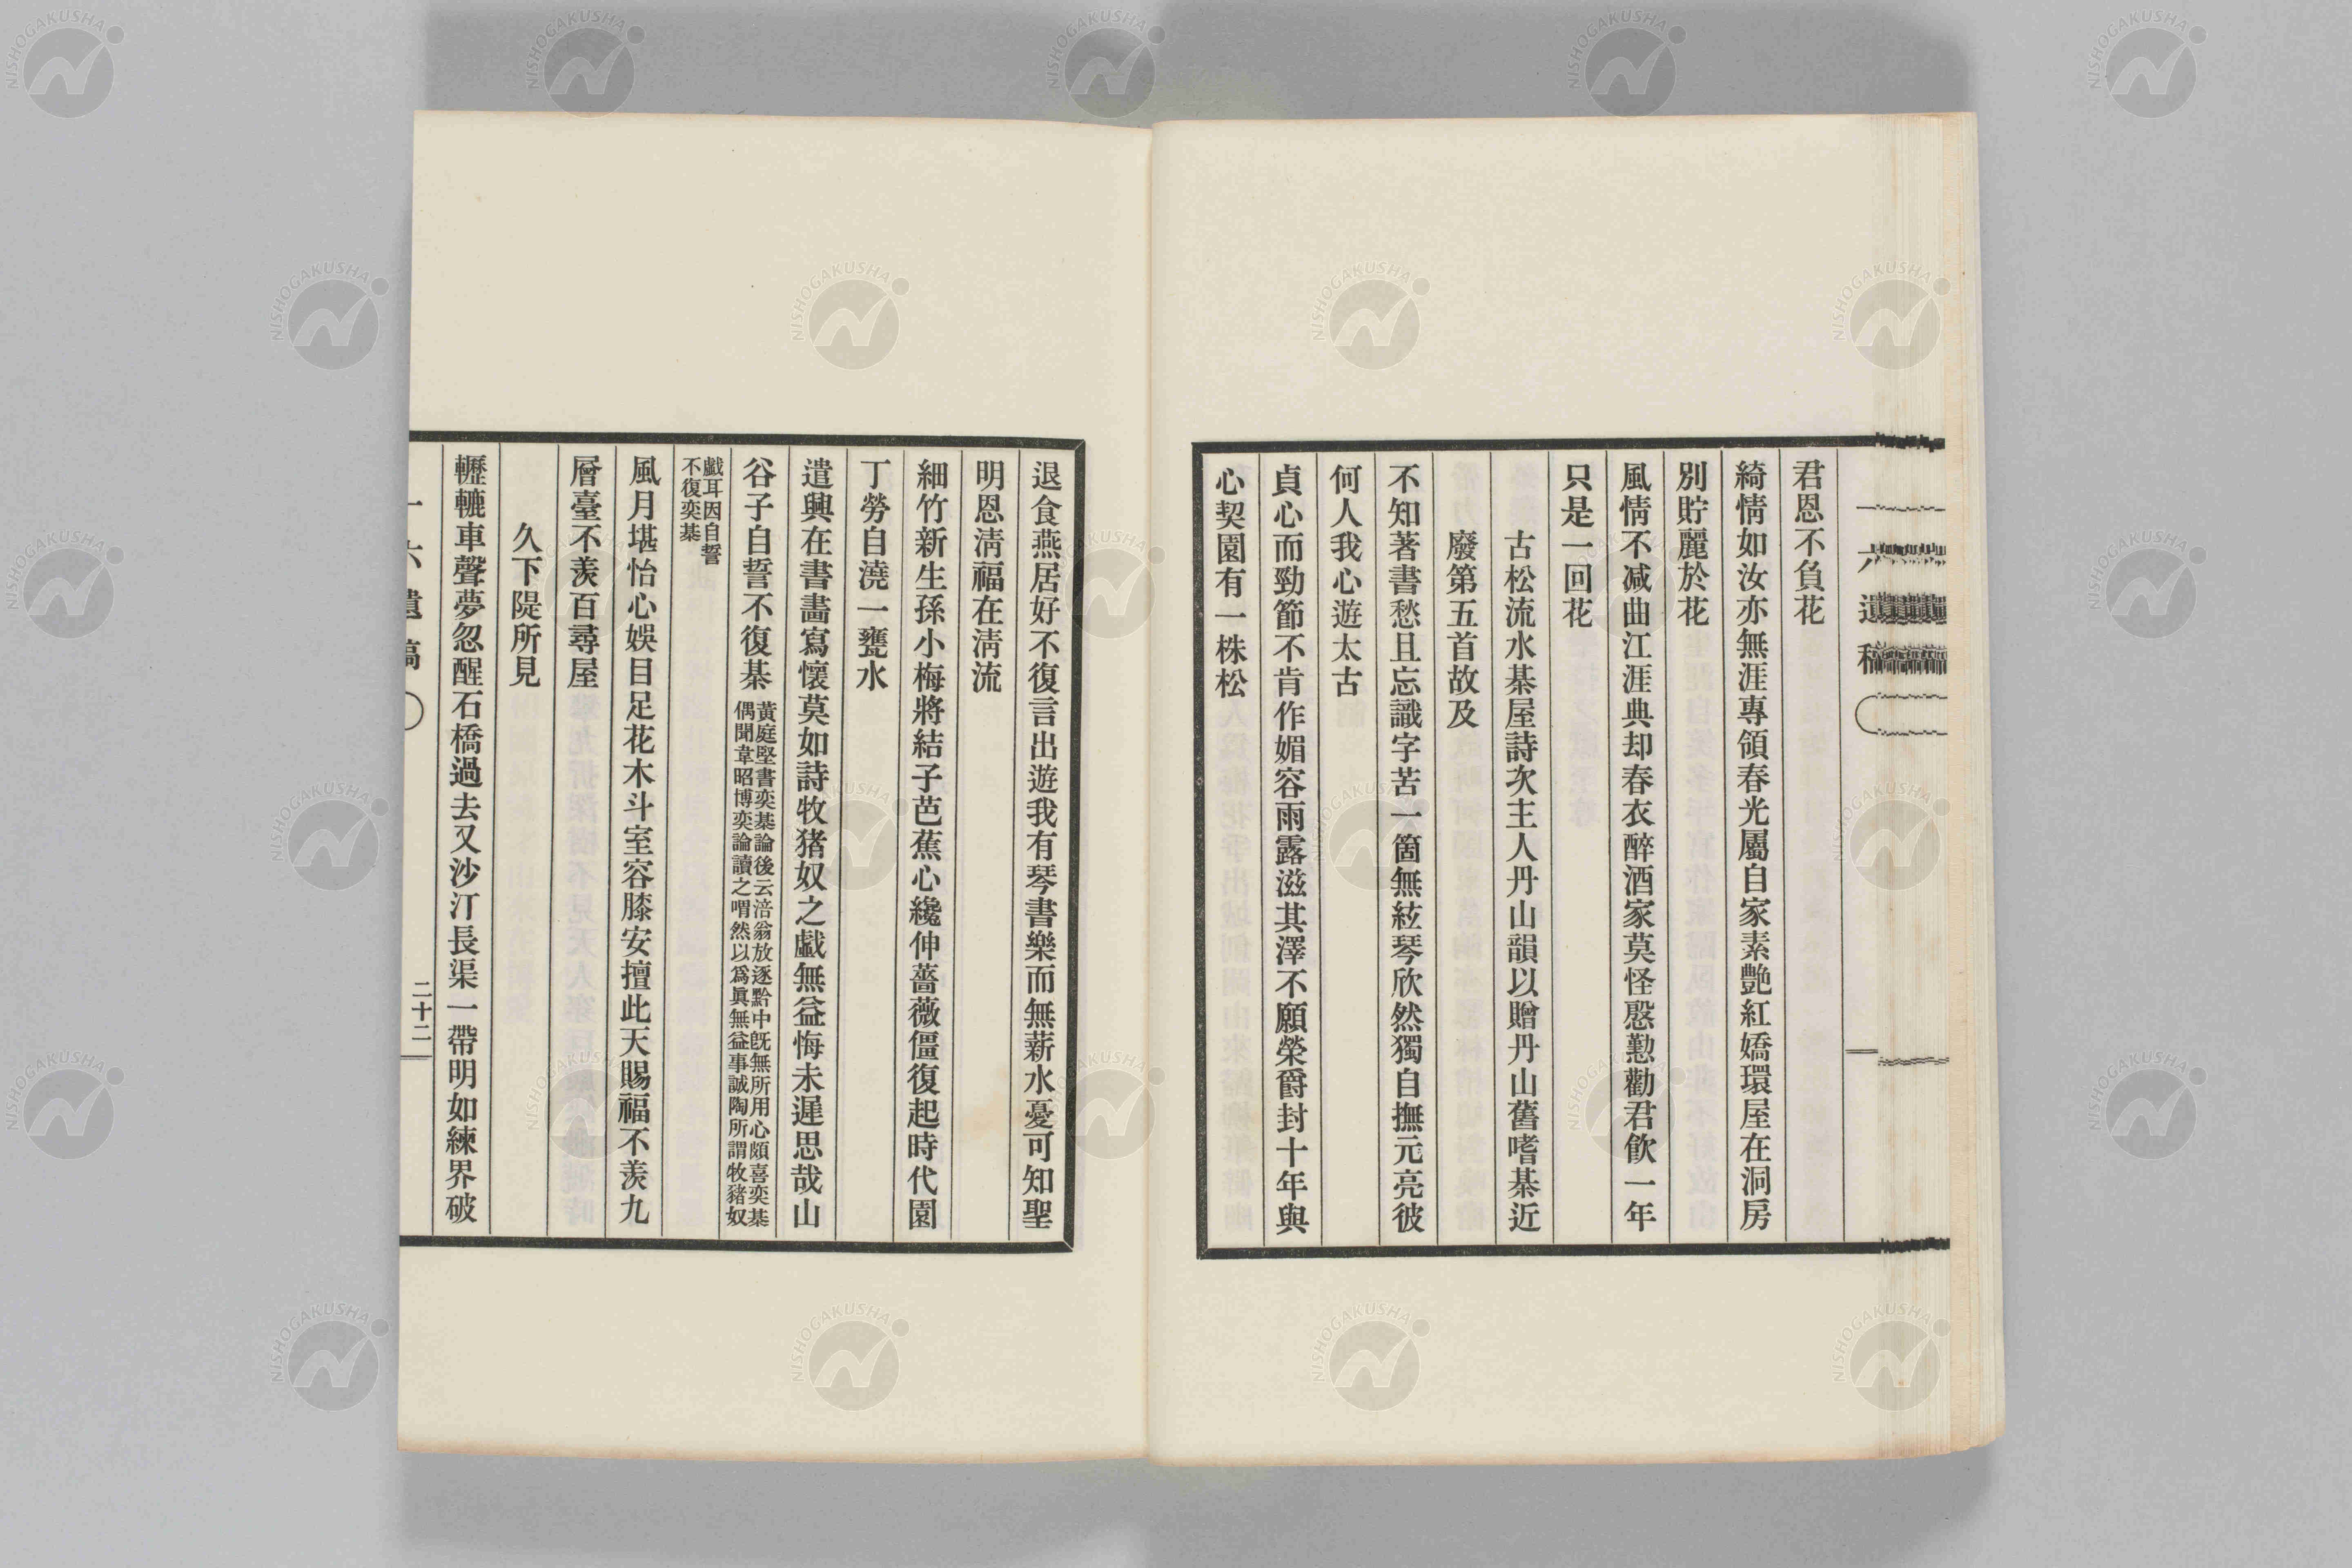 一六遺稿
君恩不負花
綺情如汝亦無涯專領春光屬自家素艷紅嬌環屋在洞房
別貯麗於花
風情不减曲江涯典却春衣醉酒家莫怪慇懃勸君飮一年
只是一回花
古松流水棊屋詩次主人丹山韻以贈丹山舊嗜棊近
廢第五首故及
不知著書愁且忘識字苦一箇無絃琴欣然獨自撫元亮彼
何人我心遊太古
貞心而勁節不肯作媚容雨露滋其澤不願榮爵封十年與
心契園有一株松
退食燕居好不復言出遊我有琴書樂而無薪水憂可知聖
明恩淸福在淸流
細竹新生孫小梅將結子芭蕉心纔伸薔薇僵復起時代園
丁勞自澆一甕水
遣興在書畵寫懷莫如詩牧猪奴之戲無益悔未遲思哉山
谷子自誓不復棊
黃庭堅書奕棊論後云涪翁放逐黔中旣無所用心頗喜奕棊
偶聞韋昭博奕論讀之喟然以爲眞無益事誠陶所謂牧豬奴
戲耳因自誓
不復奕棊
風月堪怡心娛目足花木斗室容膝安擅此天賜福不羨九
層臺不羨百尋屋
久下隄所見
轣轆車聲夢忽醒石橋過去又沙汀長渠一帶明如練界破
一六遺稿
二十二
NISHOGAKUSHA